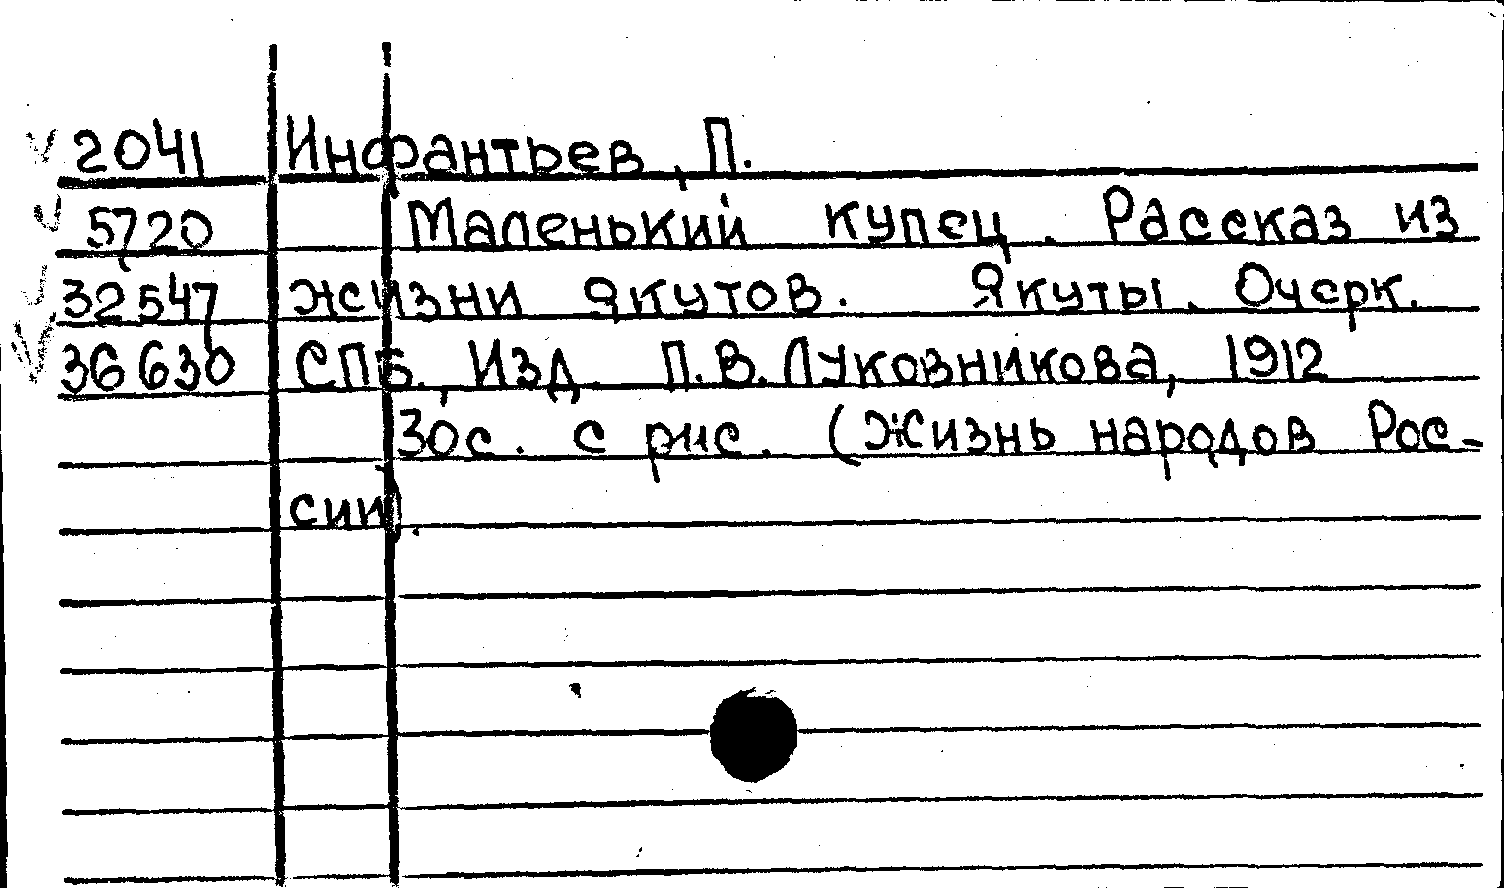 2041 Инфрантьев, П.
5720 Маленький купец. Рассказ из
32547 жизни якутов. Якуты. Очерк.
36630 СПБ., Изд. П.В.Луковникова, 1912
30с. с рис. (Жизнь народов Рос-
сии).